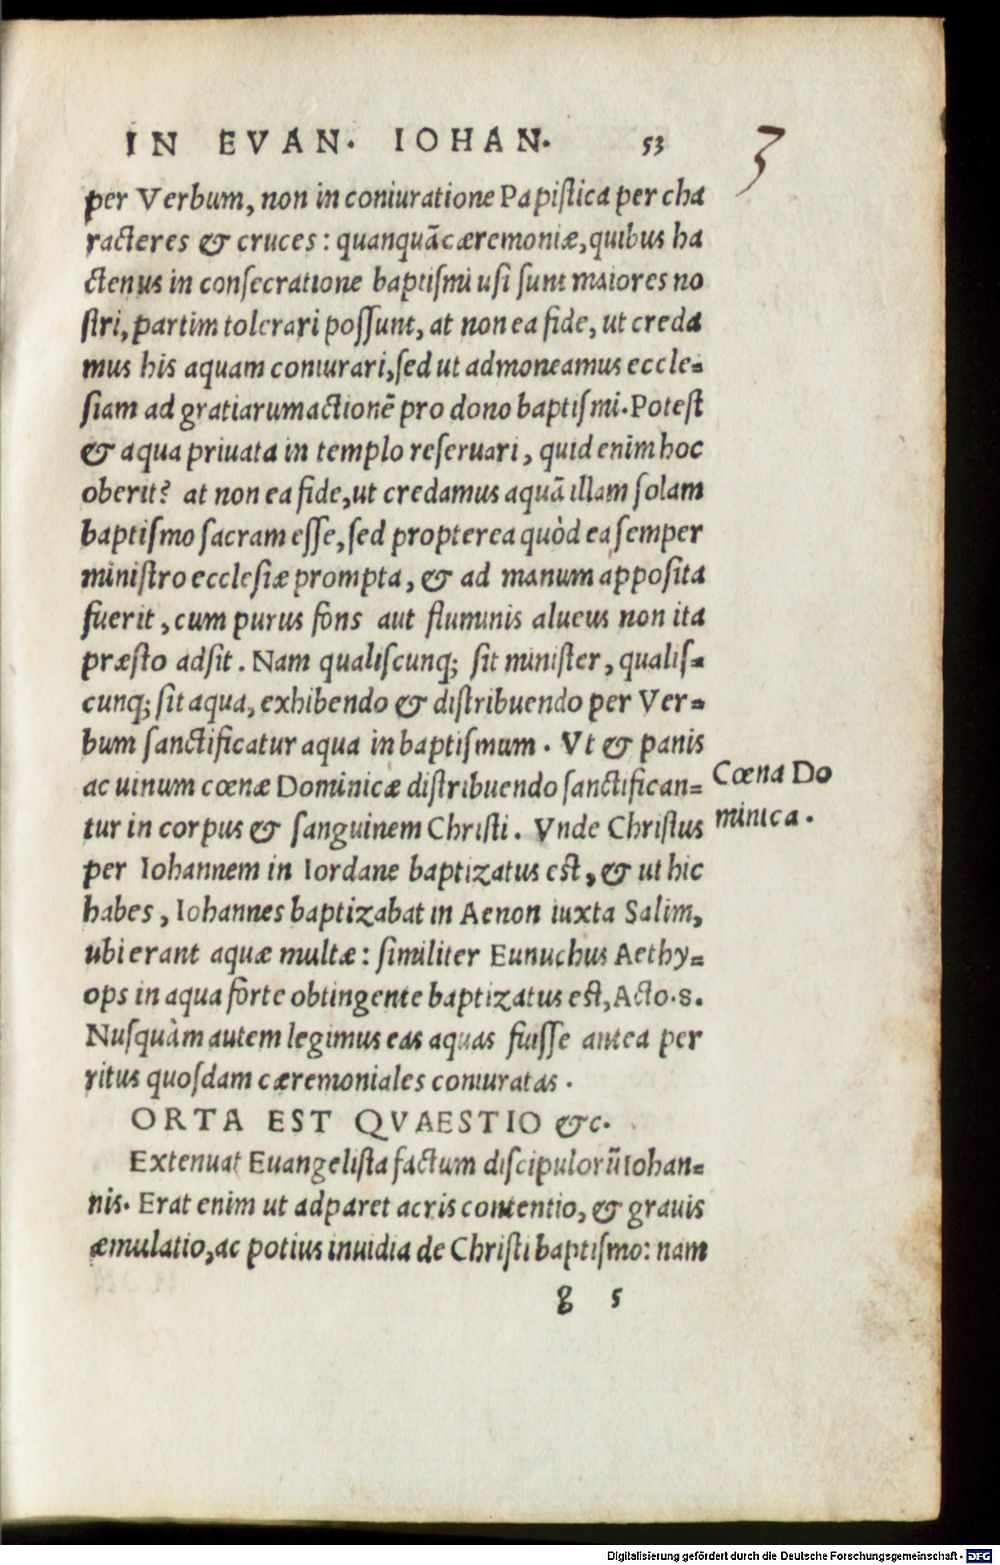 IN EVAN. IOHAN. 53
3
per Verbum, non in coniuratione Papistica per cha
racteres & cruces: quanquā cæremoniæ, quibus ha
ctenus in consecratione baptismi usi sunt maiores no
stri, partim tolerari possunt, at non ea fide, ut creda
mus his aquam coniurari, sed ut admoneamus eccle=
siam ad gratiarumactionē pro dono baptismi. Potest
& aqua priuata in templo reseruari, quid enim hoc
oberit? at non ea fide, ut credamus aquā illam solam
baptismo sacram esse, sed propterea quòd ea semper
ministro ecclesiæ prompta, & ad manum apposita
fuerit, cum purus fons aut fluminis alueus non ita
præsto adsit. Nam qualiscunq; sit minister, qualis=
cunq; sit aqua, exhibendo & distribuendo per Ver=
bum sanctificatur aqua in baptismum. Vt & panis
ac uinum cœnæ Dominicæ distribuendo sanctifican=
tur in corpus & sanguinem Christi. Vnde Christus
Cœna Do
minica.
per Iohannem in Iordane baptizatus est, & ut hic
habes, Iohannes baptizabat in Aenon iuxta Salim,
ubi erant aquæ multæ: similiter Eunuchus Aethy=
ops in aqua forte obtingente baptizatus est, Acto. 8.
Nusquàm autem legimus eas aquas fuisse antea per
ritus quosdam cæremoniales coniuratas.
ORTA EST QVAESTIO &c.
Extenuat Euangelista factum discipulorū Iohan=
nis. Erat enim ut adparet acris contentio, & grauis
æmulatio, ac potius inuidia de Christi baptismo: nam
g 5
Digitalisierung gefördert durch die Deutsche Forschungsgemeinschaft - DFG